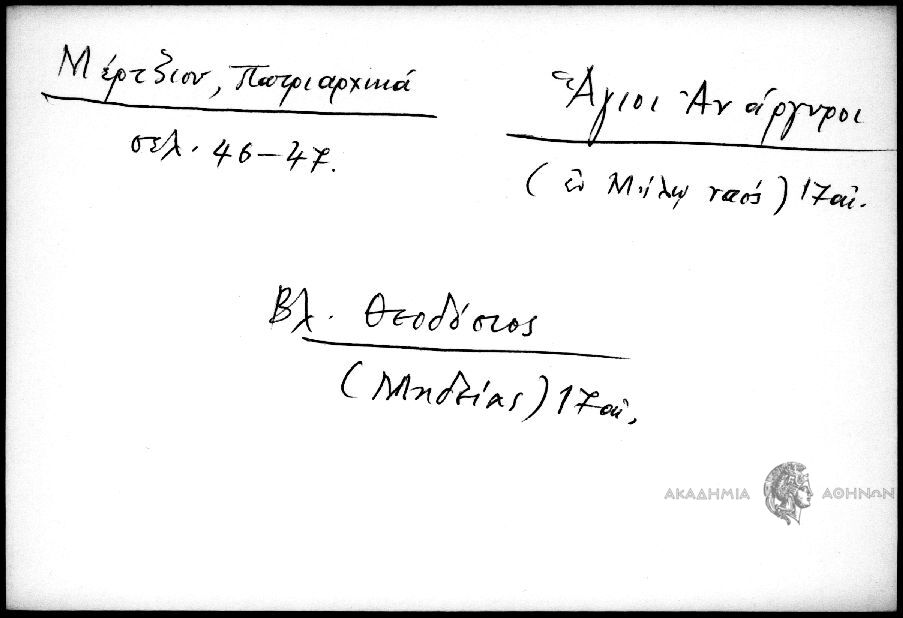 Μέρτζιου, Πατριαρχικά
σελ. 46-47.
Ἅγιοι Ἀνάργυροι
(ἐν Μήλῳ ναός) 17 αἰ.
Βλ. Θεοδόσιος
(Μηδείας) 17 αἰ.
ΑΚΑΔΗΜΙΑ ΑΘΗΝΩΝ